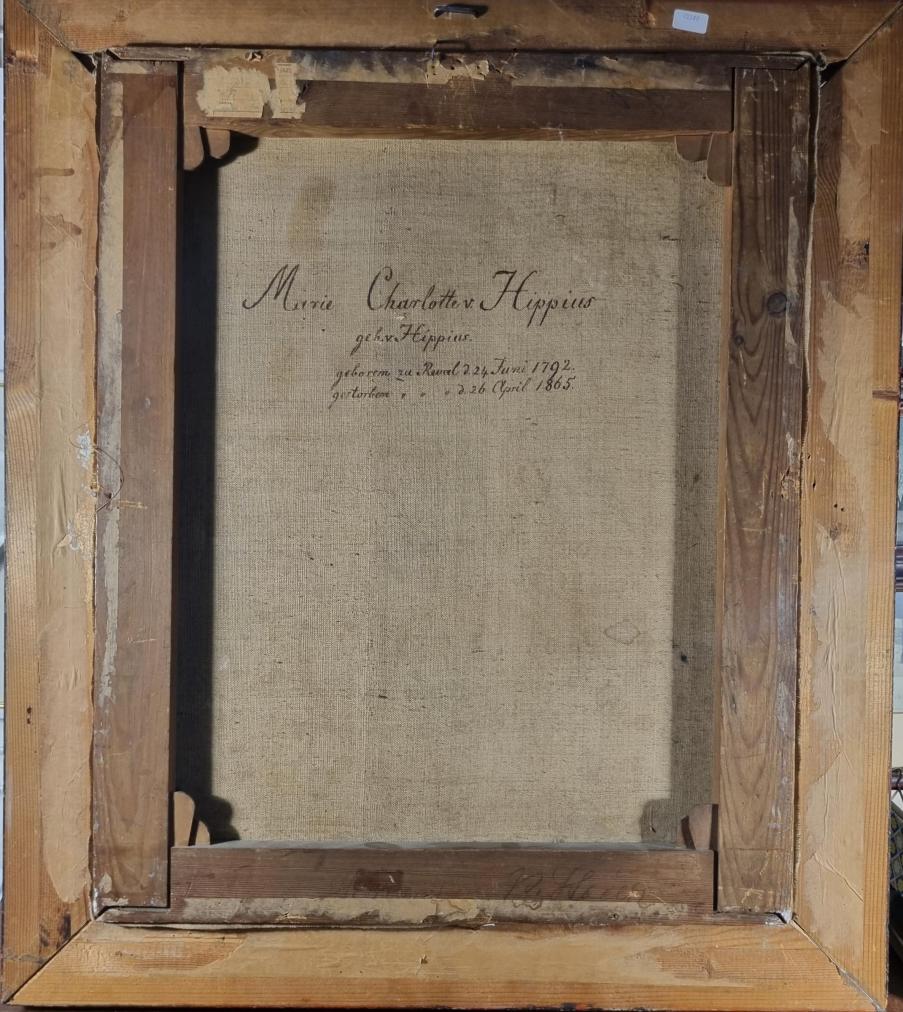 Marie Charlotte v. Hippius
geb. v. Hippius.
geborem zu Reval d. 24 Juni 1792.
gestorbem " " " d. 26 April 1865.